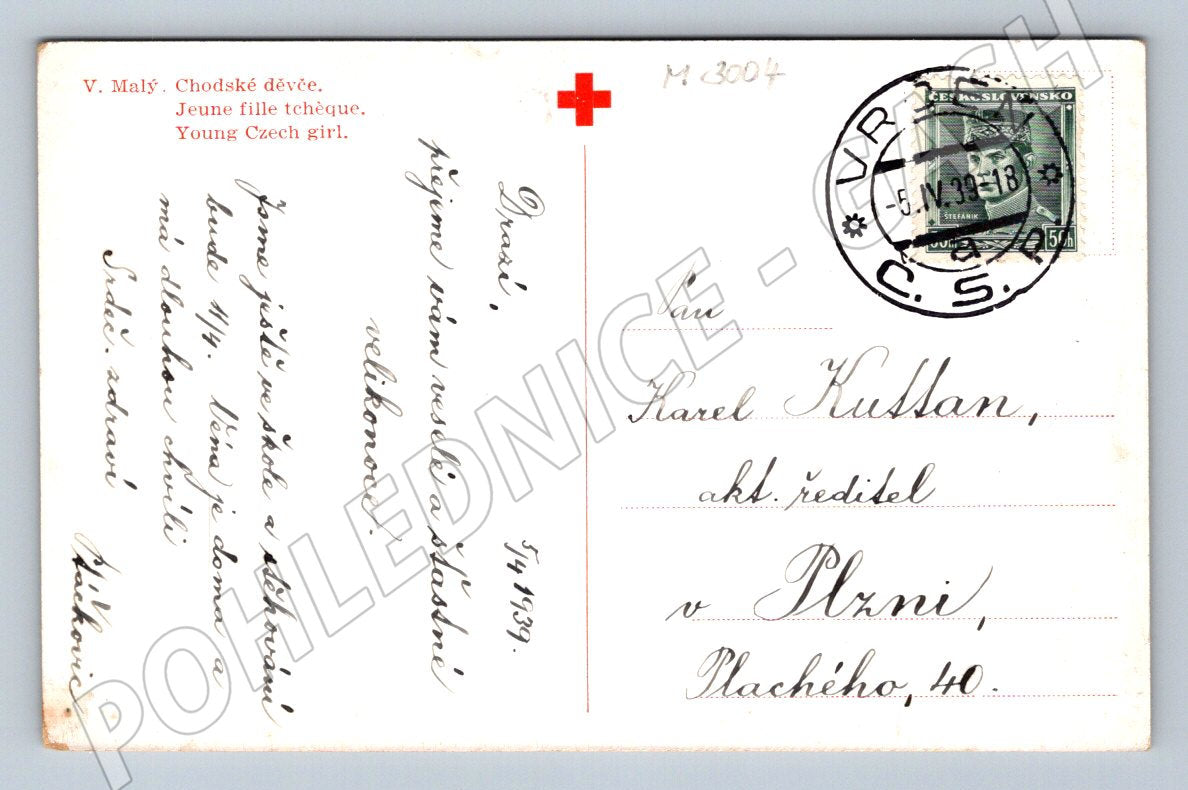 V. Malý. Chodské děvče.
Jeune fille tchèque.
Young Czech girl.
M. 3004
ČESKOSLOVENSKO
ŠTEFÁNIK
50h
-5.IV.39-18
a
Č. S. P.
Drazí,
5/4 1939.
přejeme vám veselé a šťastné
velikonoce.
Jsme ještě ve škole a stěhování
bude 11/4. Věna je doma a
má dlouhou chvíli
Srdeč. zdraví
Pan
Karel Kuttan,
akt. ředitel
v Plzni,
Plachého, 40.
POHLEDNICE - CASH